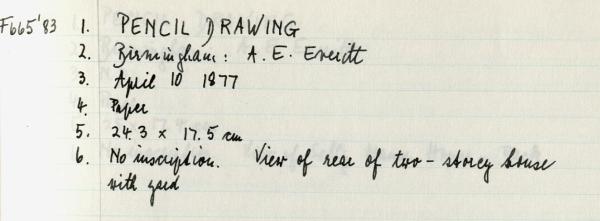 F665'83 1. PENCIL DRAWING
2. Birmingham: A. E. Everitt
3. April 10 1877
4. Paper
5. 24.3 x 17.5 cm
6. No inscription. View of rear of two-storey house
with yard